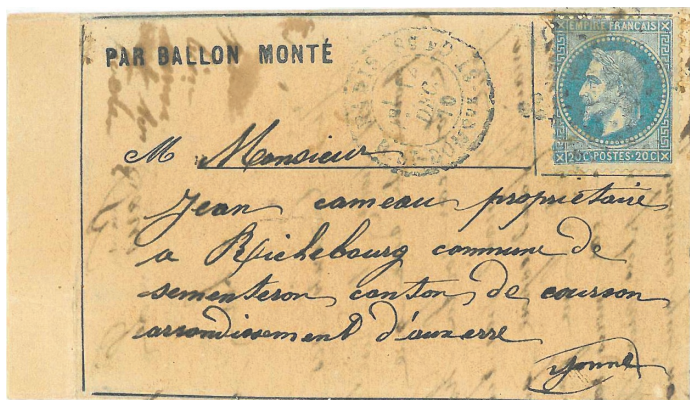 PAR BALLON MONTÉ
EMPIRE FRANÇAIS
DEC
70
20C POSTES 20C
M Monsieur
Jean cameau propriétaire
a Richebourg commune de
sementeron canton de courson
arrondissement d'auxerre
Yonne